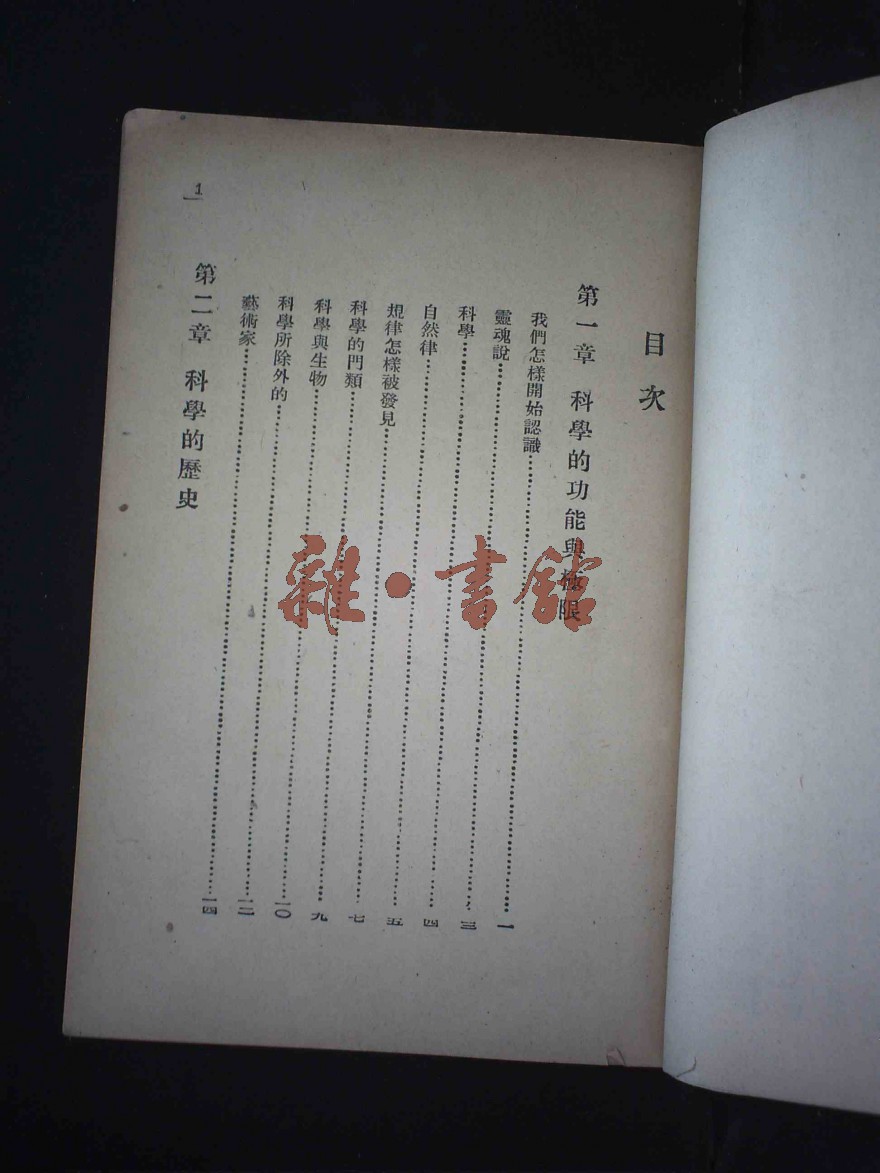 目次
第一章 科學的功能與極限
我們怎樣開始認識……一
靈魂說……三
科學……四
自然律……五
規律怎樣被發見……七
科學的門類……九
科學與生物……一〇
科學所除外的……一二
藝術家……一四
第二章 科學的歷史
1
雜·書館